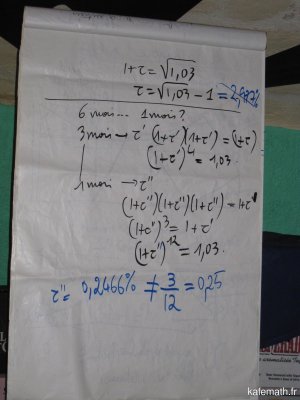 1+τ = √1,03
τ = √1,03 - 1 =
6 mois... 1 mois?
3 mois → τ' (1+τ')(1+τ') = (1+τ)
(1+τ')^4 = 1,03
1 mois → τ''
(1+τ'')(1+τ'')(1+τ'') = 1+τ'
(1+τ'')^3 = 1+τ'
(1+τ'')^12 = 1,03.
τ'' = 0,2466% ≠ 3/12 = 0,25
katemath.fr